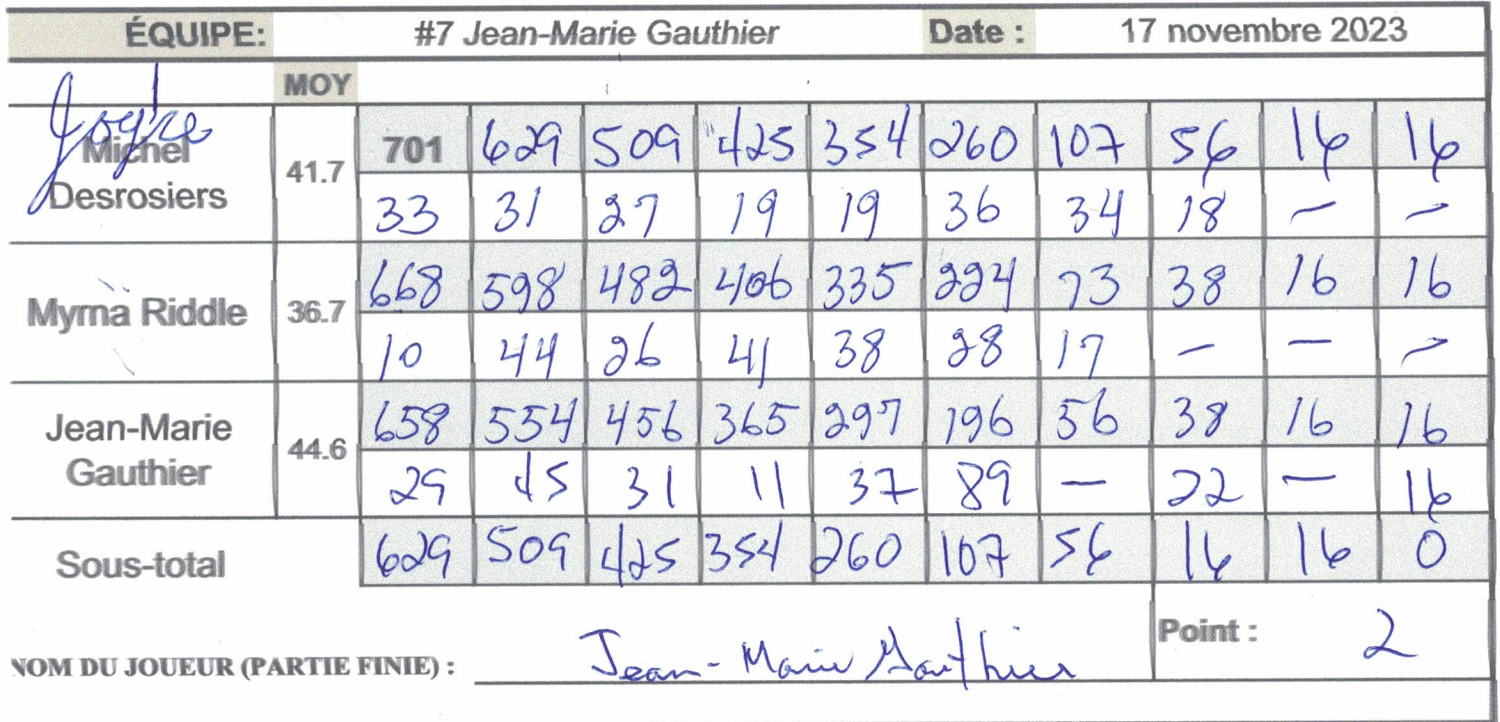 ÉQUIPE: #7 Jean-Marie Gauthier Date : 17 novembre 2023
MOY
Joyce
Michel Desrosiers 41.7 701 629 509 425 354 260 107 56 16 16
33 31 27 19 19 36 34 18 – –
Myrna Riddle 36.7 668 598 482 406 335 224 73 38 16 16
10 44 26 41 38 28 17 – – –
Jean-Marie Gauthier 44.6 658 554 456 365 297 196 56 38 16 16
29 45 31 11 37 89 – 22 – 16
Sous-total 629 509 425 354 260 107 56 16 16 0
NOM DU JOUEUR (PARTIE FINIE) : Jean-Marie Gauthier Point : 2